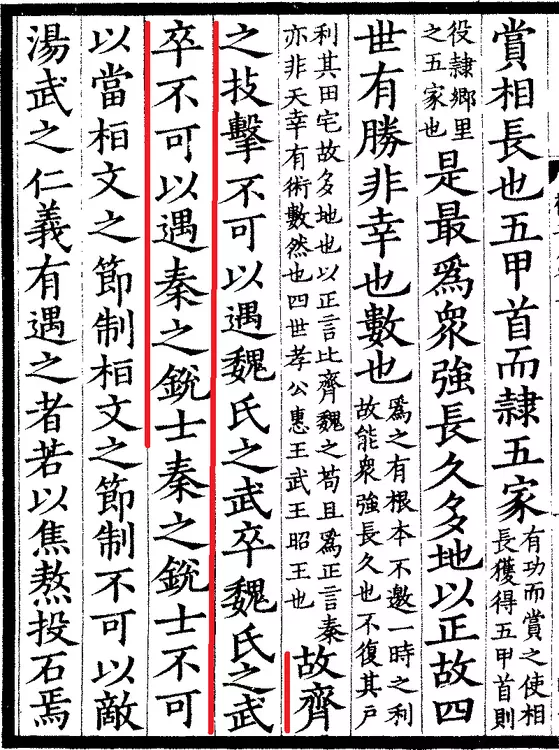 賞相長也五甲首而隸五家
有功而賞之使相
長獲得五甲首則
役隸鄉里
之五家也
是最爲衆強長久多地以正故四
世有勝非幸也數也
爲之有根本不邀一時之利
故能衆強長久也不復其戶
利其田宅故多地也以正言比齊魏之苟且爲正言秦
亦非天幸有術數然也四世孝公惠王武王昭王也
故齊
之技擊不可以遇魏氏之武卒魏氏之武
卒不可以遇秦之銳士秦之銳士不可
以當桓文之節制桓文之節制不可以敵
湯武之仁義有遇之者若以焦熬投石焉